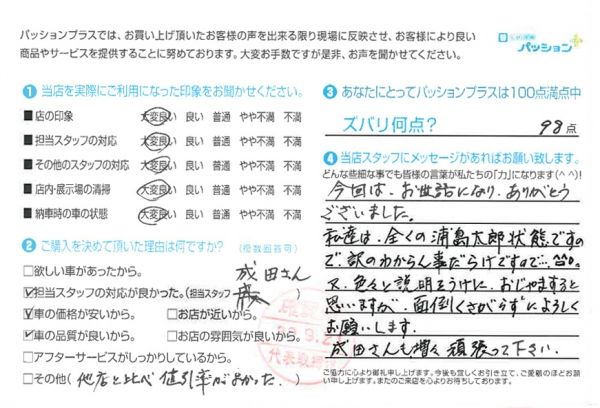 パッションプラスでは、お買い上げ頂いたお客様の声を出来る限り現場に反映させ、お客様により良い
商品やサービスを提供することに努めております。大変お手数ですが是非、お声を聞かせてください。
パッション
1 当店を実際にご利用になった印象をお聞かせください。
■店の印象 大変良い 良い 普通 やや不満 不満
■担当スタッフの対応 大変良い 良い 普通 やや不満 不満
■その他のスタッフの対応 大変良い 良い 普通 やや不満 不満
■店内・展示場の清掃 大変良い 良い 普通 やや不満 不満
■納車時の車の状態 大変良い 良い 普通 やや不満 不満
2 ご購入を決めて頂いた理由は何ですか? (複数回答可)
□欲しい車があったから。 成田さん
☑担当スタッフの対応が良かった。(担当スタッフ
☑車の価格が安いから。 □お店が近いから。
☑車の品質が良いから。 □お店の雰囲気が良いから。
□アフターサービスがしっかりしているから。
□その他( 他店と比べ値引率がよかった. )
代表取締役
3 あなたにとってパッションプラスは100点満点中
ズバリ何点? 98点
4 当店スタッフにメッセージがあればお願い致します。
どんな些細な事でも皆様の言葉が私たちの「力」になります(^^)!
今回は、お世話になり、ありがとう
ございました。
私達は、全くの浦島太郎状態ですの
で、訳のわからん事だらけですので…
又、色々と説明をうけに、おじゃますると
思いますが、面倒くさがらずによろしく
お願いします.
成田さんも増々頑張って下さい.
ご協力に心より御礼申し上げます。今後も宜しくお引き立て、ご愛顧のほどお願い申し上げます。またのご来店を心よりお待ちしております。